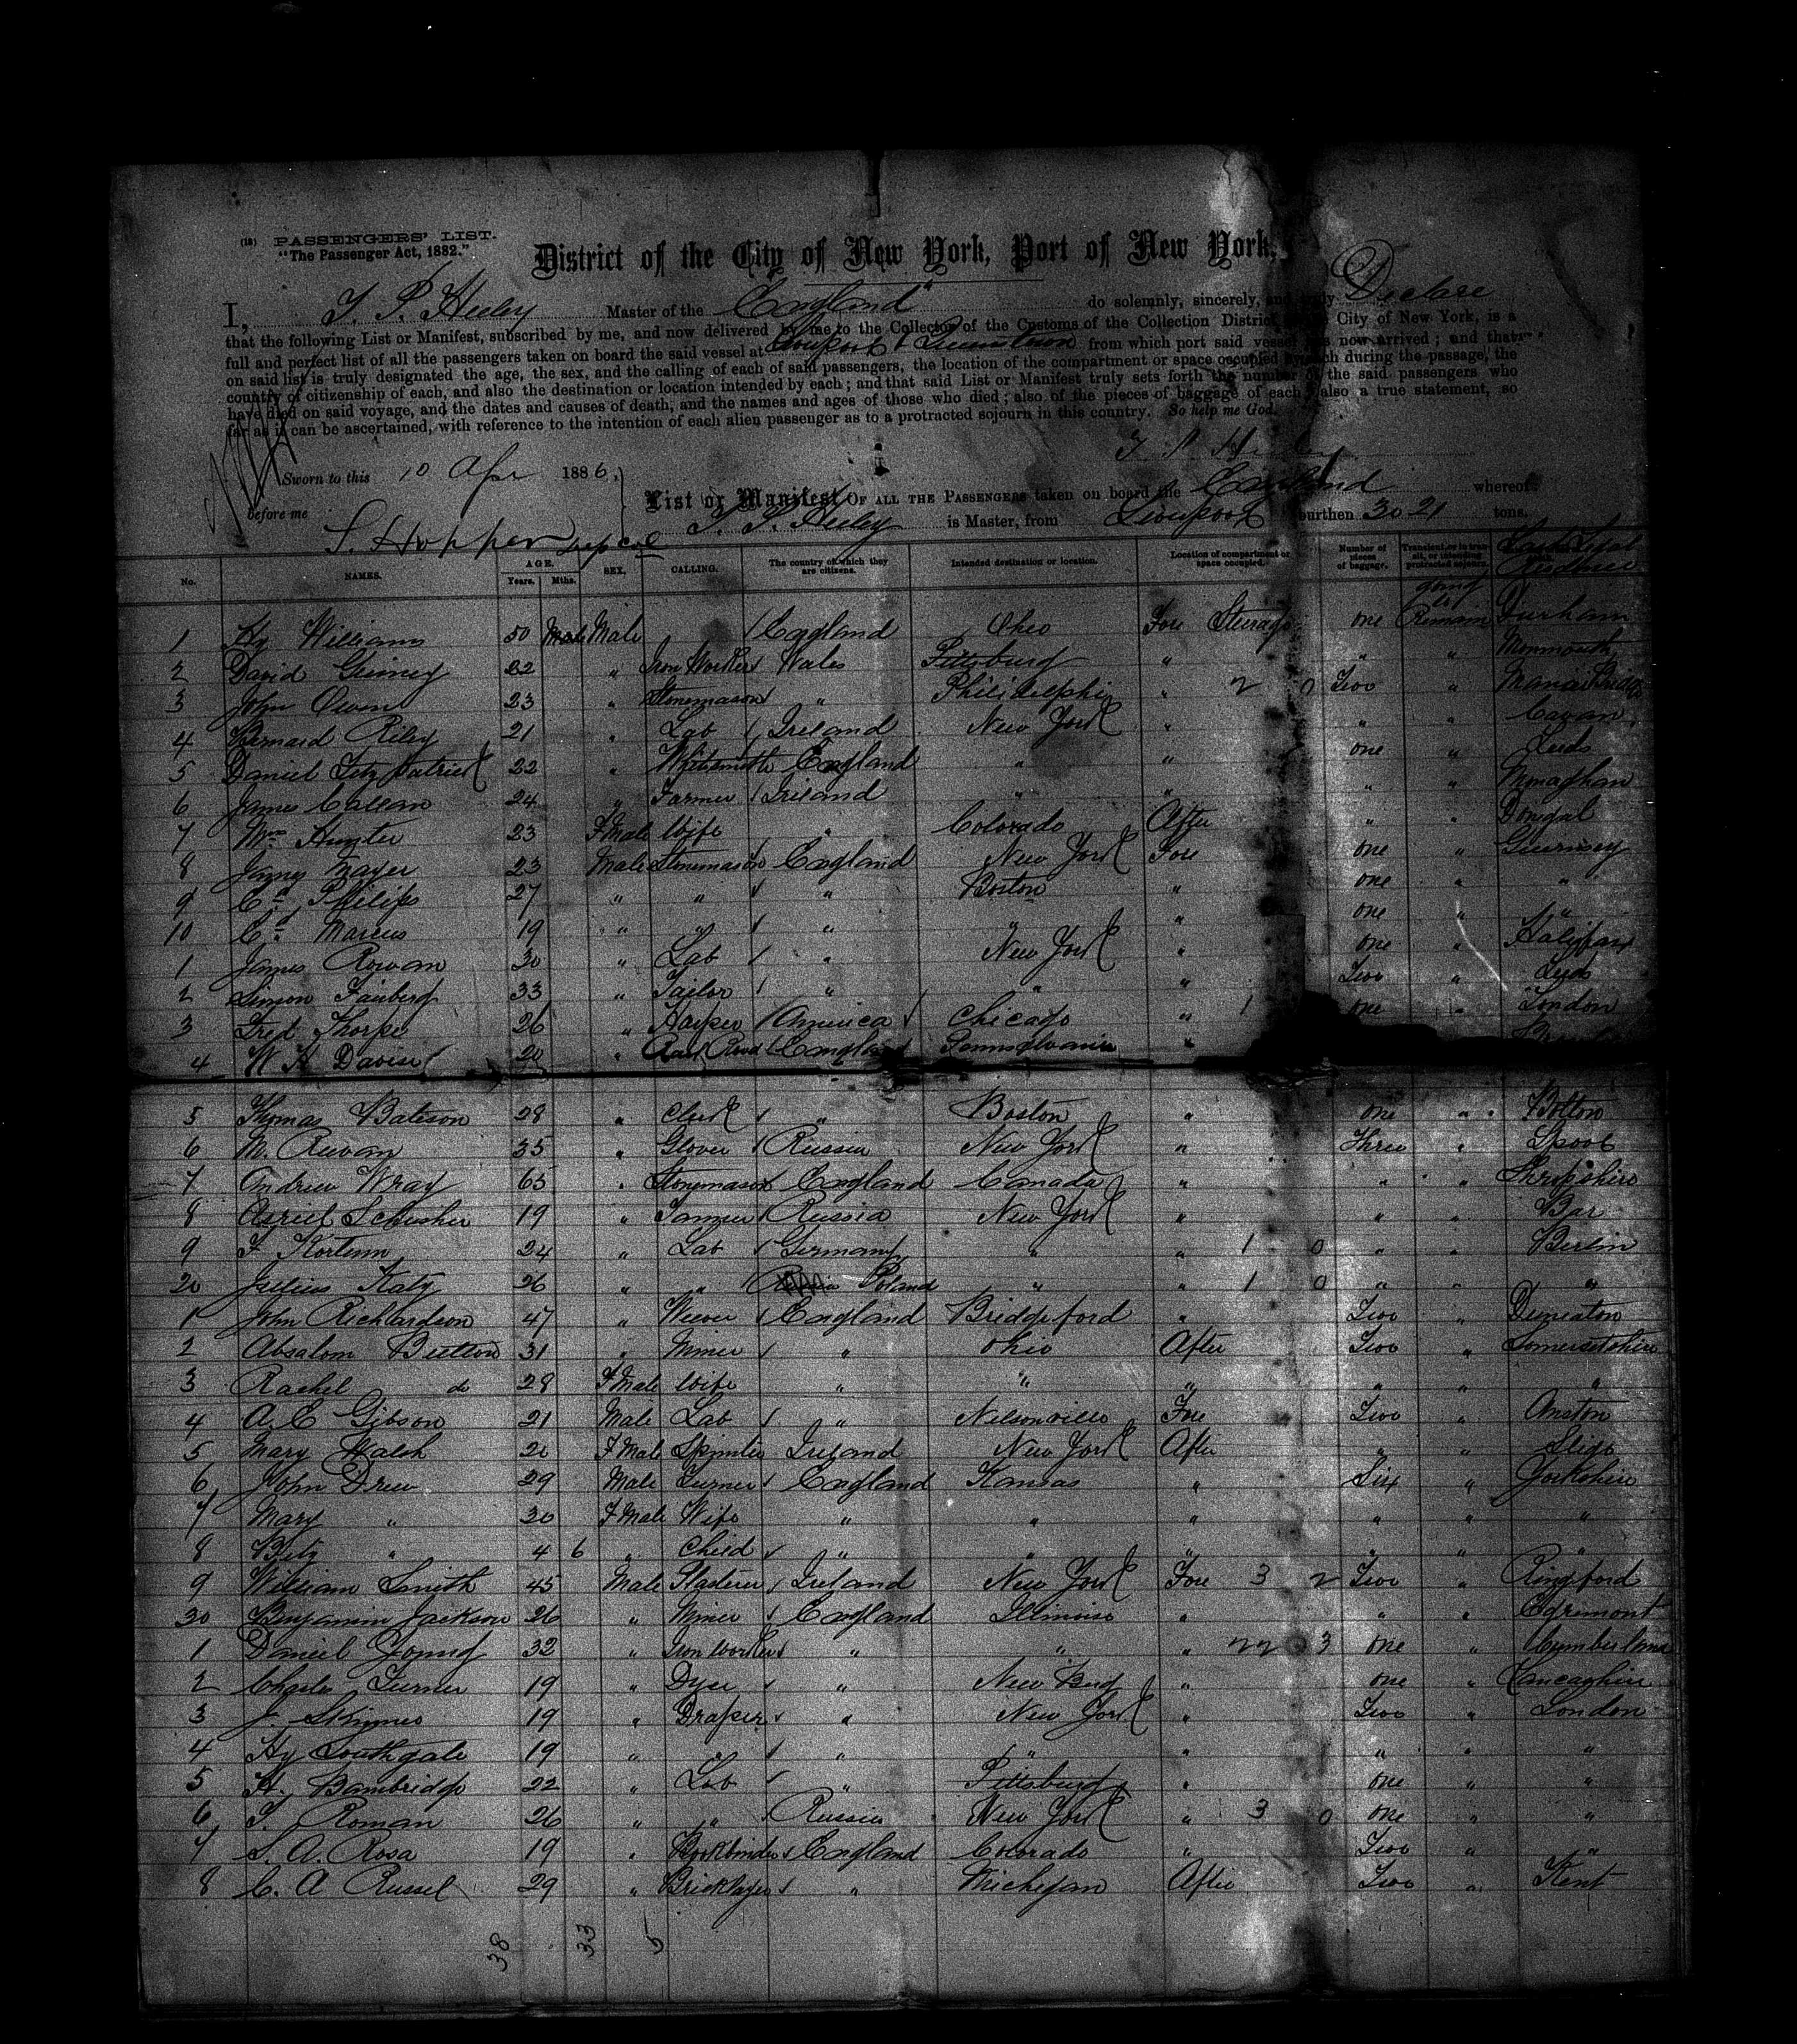 (18) PASSENGERS' LIST.
"The Passenger Act, 1882."
District of the City of New York, Port of New York,
I, T. P. Heeley Master of the "England" do solemnly, sincerely, and truly Declare
that the following List or Manifest, subscribed by me, and now delivered by me to the Collector of the Customs of the Collection District City of New York, is a
full and perfect list of all the passengers taken on board the said vessel at Liverpool & Queenstown from which port said vessel has now arrived; and that
on said list is truly designated the age, the sex, and the calling of each of said passengers, the location of the compartment or space occupied by each during the passage, the
country of citizenship of each, and also the destination or location intended by each; and that said List or Manifest truly sets forth the number of the said passengers who
have died on said voyage, and the dates and causes of death, and the names and ages of those who died; also of the pieces of baggage of each also a true statement, so
far as it can be ascertained, with reference to the intention of each alien passenger as to a protracted sojourn in this country. So help me God.
T. P. Heeley
Sworn to this 10 Apr 1886,
before me
S. Hopper Dep Col
List or Manifest OF ALL THE PASSENGERS taken on board the England whereof
T. P. Heeley is Master, from Liverpool burthen 3021 tons.
No. NAMES. AGE. Years. Mths. SEX. CALLING. The country of which they are citizens. Intended destination or location. Location of compartment or space occupied. Number of pieces of baggage. Transient, or in transit, or intending protracted sojourn. Last Legal Residence
1 Hy Williams 50 Male Male England Ohio Fore Steerage one going to Remain Durham
2 David Guiney 22 " Iron Worker Wales Pittsburg " " " Monmouth
3 John Owen 23 " Stonemason " Philidelphia " 2 0 Two "
4 Bernard Riley 21 " Lab Ireland New York " " " Cavan
5 Daniel Fitzpatrick 22 " Whitesmith England " " one " Leeds
6 James Callan 24 " Farmer Ireland " " " " Monaghan
7 Mrs Hunter 23 F Male Wife " Colorado After " " Donegal
8 James Mayer 23 Male Stonemason England New York Fore one " Guernsey
9 Cd Philips 27 " " " Boston " one " "
10 Cd Marcus 19 " " " " " one " "
1 James Rowan 30 " Lab " New York " one " Halifax
2 Simon Fainberg 33 " Tailor " " " Two " Leeds
3 Fred Thorpe 26 " America Chicago " 1 one " London
4 W H Davies 20 " Rail Road England Pennsylvania "
5 Thomas Bateson 28 " Clerk " Boston " one " Bolton
6 M. Ruvan 35 " Glover Russia New York " Three "
7 Andrew Wray 65 " Stonemason England Canada " " " Shropshire
8 Asriel Schusher 19 " Tanner Russia New York " " " Bar
9 F Kortum 24 " Lab Germany " " 1 0 " " Berlin
20 Jullius Katz 26 " " Poland " " 1 0 " " "
1 John Richardson 47 " Weever England Bridgeford " Two "
2 Absalom Button 31 " Miner " Ohio After Two " Somersetshire
3 Rachel do 28 F Male Wife " " " " " "
4 A. E Gibson 21 Male Lab " Nelsonville Fore Two " Anston
5 Mary Walsh 20 F Male Spinster Ireland New York After " " Sligo
6 John Drew 29 Male Turner England Kansas " Six " Yorkshire
7 Mary " 30 F Male Wife " " " " " "
8 Betz " 4 6 " Child " " " " " "
9 William Smith 45 Male Plasterer Ireland New York Fore 3 2 Two "
30 Benjamin Jackson 26 " Miner England Illinois " " " Egremont
1 Daniel Young 32 " Iron Worker " " " 22 3 one " Cumberland
2 Charles Turner 19 " Dyer " New " one " Lancashire
3 J. Skinner 19 " Draper " New York " Two " London
4 Hy Southgate 19 " " " " " " " "
5 H. Bambridge 22 " Lab " Pittsburg " one " "
6 T. Roman 26 " " Russia New York " 3 0 one " "
7 S. A. Rosa 19 " Bookbinder England Colorado " Two " "
8 C. A Russel 29 " Bricklayer " Michegan After Two " Kent
38 33 5